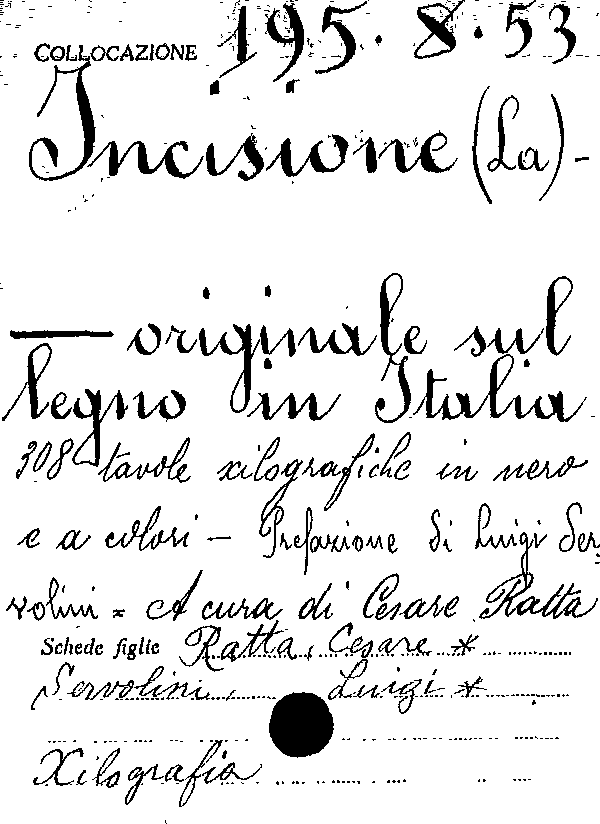 COLLOCAZIONE 195.8.53
Incisione (La) -
— originale sul
legno in Italia
308 tavole xilografiche in nero
e a colori — Prefazione di Luigi Ser
volini = A cura di Cesare Ratta
Schede figlie Ratta, Cesare *
Servolini, Luigi *
Xilografia